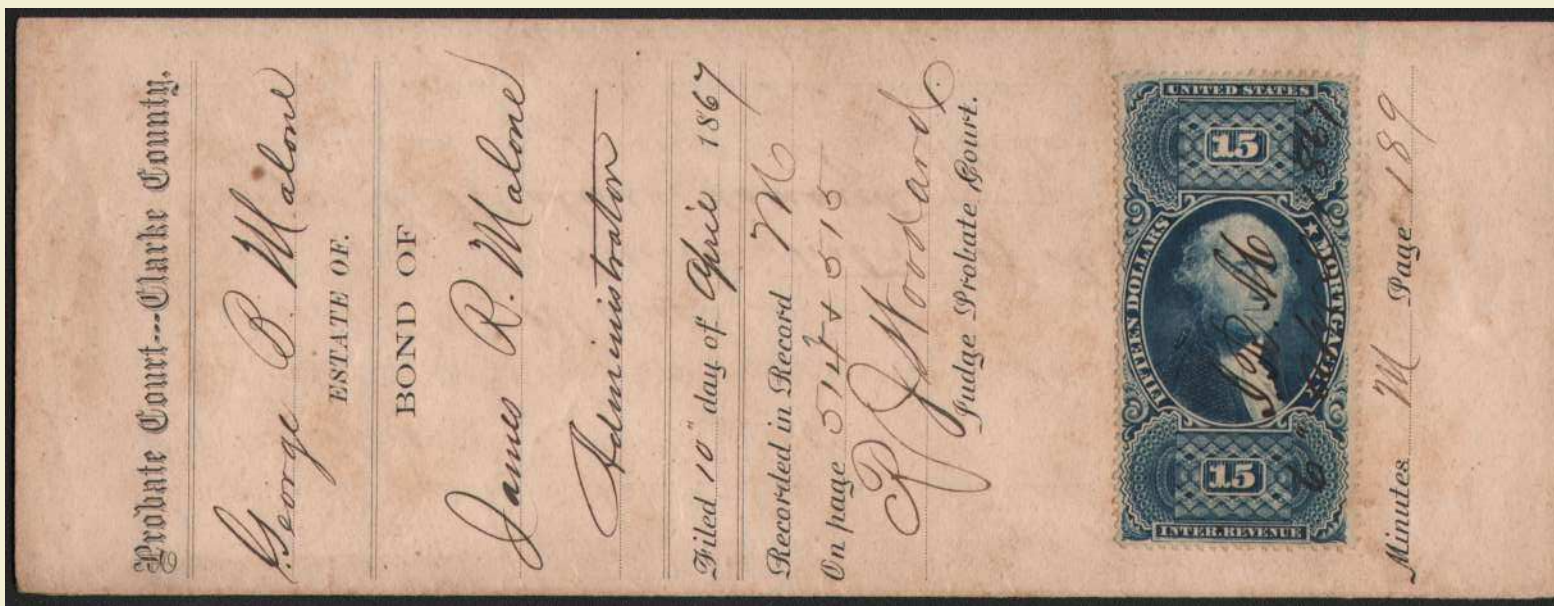 Probate Court---Clarke County.
George B. Malone
ESTATE OF.
BOND OF
James R. Malone
Administrator
Filed 10" day of April 1867
Recorded in Record M
On page 514 & 515
Woodard
Judge Probate Court.
UNITED STATES
15
FIFTEEN DOLLARS
MORTGAGE
15
INTER. REVENUE
Minutes M Page 189